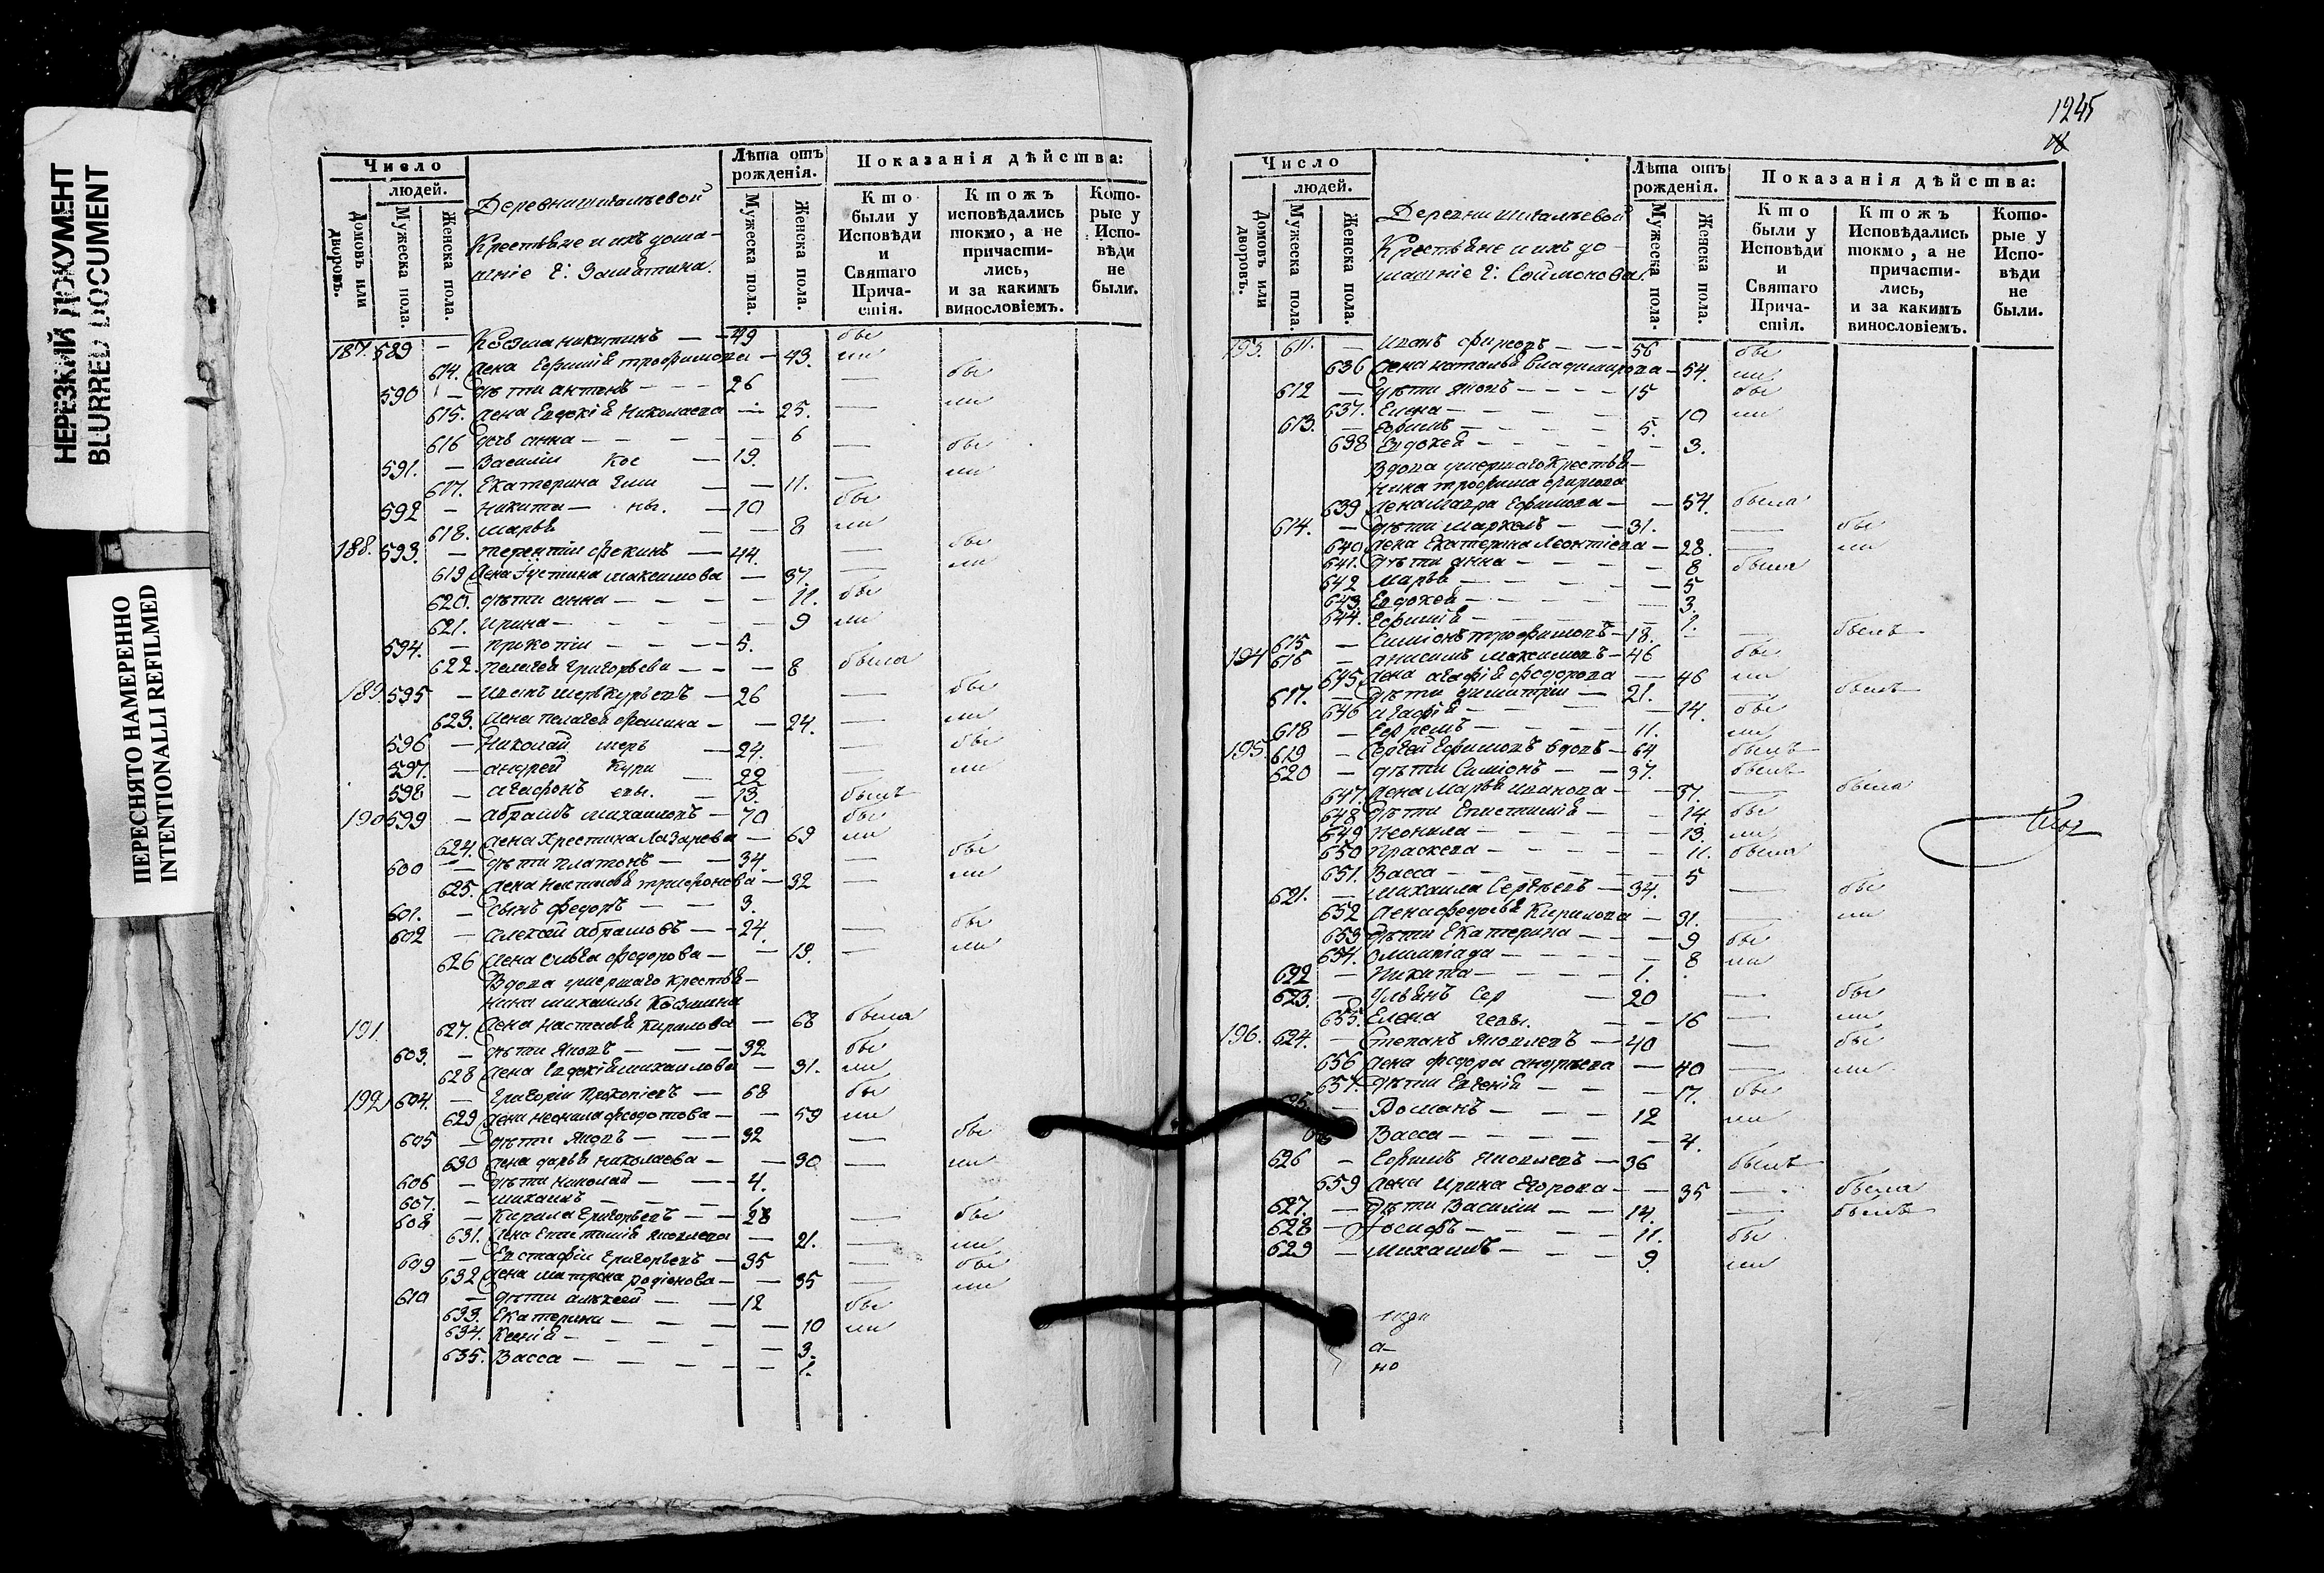 НЕРЕЗКИЙ ДОКУМЕНТ
BLURRED DOCUMENT
ПЕРЕСНЯТО НАМЕРЕННО
INTENTIONALLI REFILMED
Число
людей.
Домовъ или дворовъ.
Мужеска пола.
Женска пола.
Деревни шигалѣевой
Крестьяне и ихъ дома-
шніе г: Замятина.
Лѣта отъ рожденія.
Мужеска пола.
Женска пола.
Показанія дѣйства:
Кто были у Исповѣди и Святаго Причастія.
Ктожъ исповѣдались токмо, а не причастились, и за какимъ винословіемъ.
Которые у Исповѣди не были.
187. 589 — Козма никитинъ — 49 бы
614. жена Ефимія трофимова — 43. ли
590 — дѣти антонъ — 26 — бы
615. жена Евдокія Николаева — 25. — ли
616 дочь анна — 6
591. — Василіи Кос — 19. — бы
617. Екатерина зми — 11. — ли
592 — никита — ны. — 10 бы
618. марья — 8 ли
188. 593. — терентіи фокинъ — 44. — бы
619 жена Устина максимова — 37. — ли
620. дѣти анна — 11. бы
621. ирина — 9 ли
594. — прокопіи — 5.
622. пелагея григорьева — 8 была
189. 595 — иванъ меркурьевъ — 26 — бы
623. жена пелагея фомина — 24. — ли
596 — Николай мер — 24. — бы
597. — андрей кури — 22 — ли
598 — агафонъ евы. — 13. былъ
190 599 — абрамъ михаиловъ — 70 бы
624. жена Хрестина Лазарева — 69 ли
600 — дѣти платонъ — 34. — бы
625. жена настасья трифонова — 32 — ли
601. — сынъ федоръ — 3.
602 — алексей абрамовъ — 24. — бы
626 жена федорова — 19. — ли
Вдова умершаго крестья-
нина михаилы Козмина
191. 627. жена настасья кирилова — 68 была
603. — дѣти Яковъ — 32 бы
628 жена Евдокія михаилова — 31. ли
192 604. — григоріи прокопіевъ — 68 бы
629 жена неонила федотова — 59 ли
605 — дѣти Яковъ — 32 — бы
630 жена дарья николаева — 30 — ли
606 — дѣти николай — 4.
607. — михаилъ — 1.
608 — кирила григорьевъ — 28 — бы
631. жена Епистимія Яковлева — 21. — ли
609 — Евстафіи григорьевъ — 35 — бы
632 жена матрона родіонова — 35 — ли
610 — дѣти алексей — 12 бы
633. Екатерина — 10 ли
634. Ксенія — 3.
635. Васса — 1.
1245
Число
людей.
Домовъ или дворовъ.
Мужеска пола.
Женска пола.
Деревни шигалѣевой
Крестьяне и ихъ до-
машніе г: Соймонова.
Лѣта отъ рожденія.
Мужеска пола.
Женска пола.
Показанія дѣйства:
Кто были у Исповѣди и Святаго Причастія.
Ктожъ Исповѣдались токмо, а не причастились, и за какимъ винословіемъ.
Которые у Исповѣди не были.
193. 611. — иванъ фирсовъ — 56 бы
636 жена наталья владимирова — 54. ли
612 — дѣти Яковъ — 15 бы
637. Елена — 10 ли
613. — Ефимъ — 5.
638 Евдокея — 3.
Вдова умершаго крестья-
нина трофима фирсова
639 жена мавра Ефимова — 54. была
614. — дѣти маркелъ — 31. — бы
640 жена Екатерина Леонтіева — 28. — ли
641. дѣти анна — 8 была
642 марья — 5
643. Евдокея — 3.
644. Ефимія — 1.
615 — Симіонъ трофимовъ — 18. — былъ
194 616 — анисимъ максимовъ — 46 бы
645 жена агафія федорова — 46 ли
617. — дѣти димитріи — 21. — былъ
646 агафія — 14. бы
618 — Ефремъ — 11. ли
195. 619 — Сергей Ефимовъ вдовъ — 64. былъ
620 — дѣти Симіонъ — 37. былъ
647. жена Марья иванова — 37. — была
648 дѣти Епистимія — 14. бы
649 неонила — 13. ли
650 прасковья — 11. была
651. Васса — 5
621. — михаила Сергѣевъ — 34. — бы
652 жена федосья Кирилова — 31. — ли
653 дѣти Екатерина — 9 бы
654. олимпіада — 8 ли
622 — Никита — 1.
623. — Ульянъ Сер — 20 — бы
655. Елена геевы. — 16 — ли
196. 624. — Степанъ Яковлевъ — 40 — бы
656 жена федора андреева — 40 — ли
657. дѣти Евгенія — 17. бы
625. — Романъ — 12 ли
Васса — 4.
626 — Ефимъ Яковлевъ — 36 былъ
659 жена Ирина Егорова — 35 — была
627. — дѣти Василіи — 14. — былъ
628 — Іосифъ — 11. бы
629 — михаилъ — 9. ли
а-
но